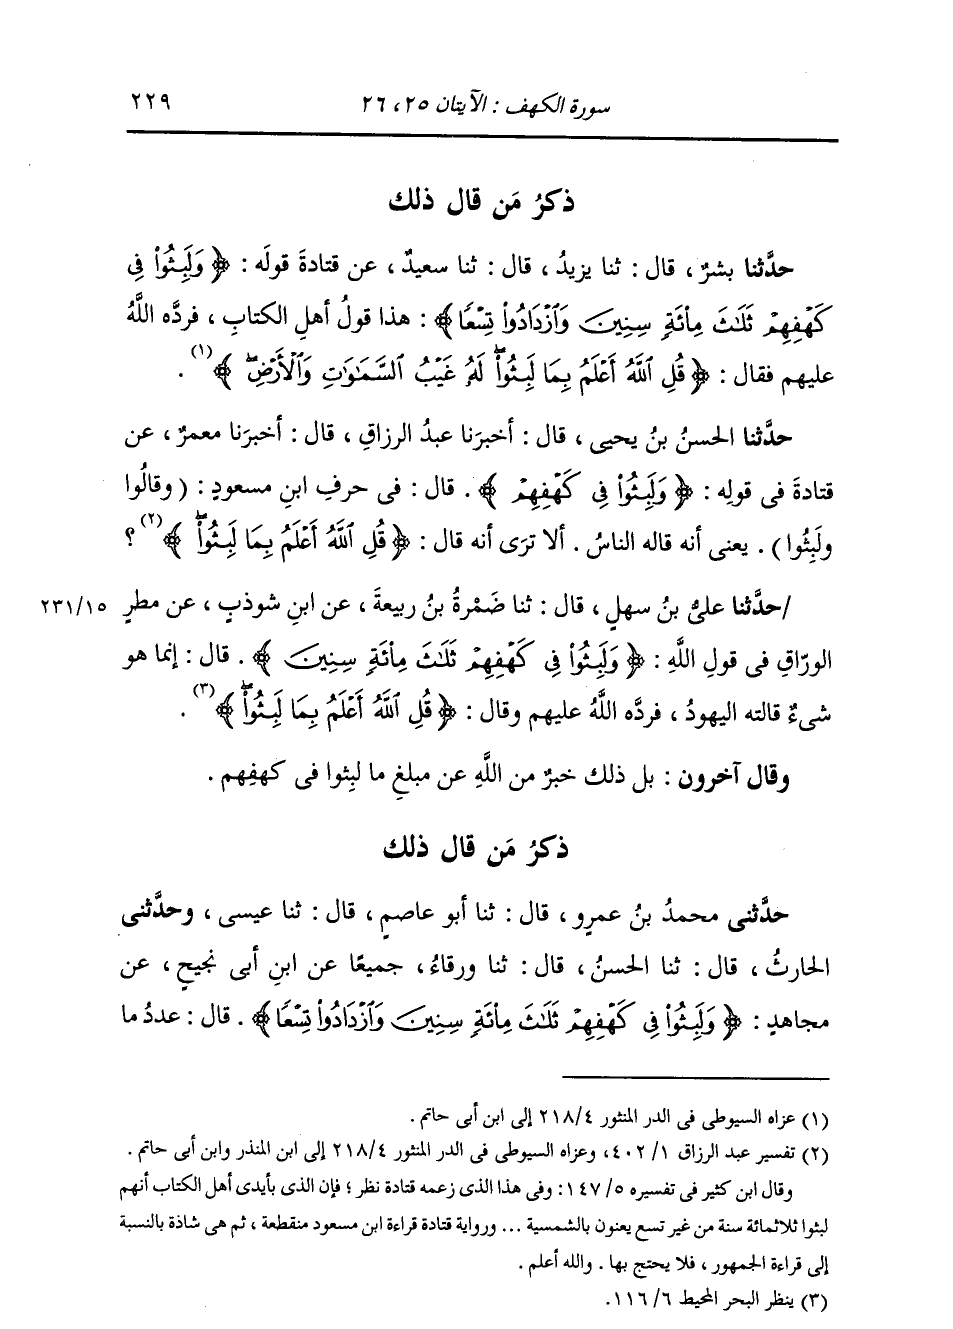 سورة الكهف : الآيتان ٢٥، ٢٦
٢٢٩
ذكرُ مَن قال ذلك
حدَّثنا بشرٌ ، قال : ثنا يزيدُ ، قال : ثنا سعيدٌ ، عن قتادةَ قولَه : ﴿ وَلَبِثُوا۟ فِى
كَهْفِهِمْ ثَلَـٰثَ مِا۟ئَةٍ سِنِينَ وَٱزْدَادُوا۟ تِسْعًا ﴾ : هذا قولُ أهلِ الكتابِ ، فردَّه اللَّهُ
عليهم فقال : ﴿ قُلِ ٱللَّهُ أَعْلَمُ بِمَا لَبِثُوا۟ۖ لَهُۥ غَيْبُ ٱلسَّمَـٰوَٰتِ وَٱلْأَرْضِۖ ﴾ (١) .
حدَّثنا الحسنُ بنُ يحيى ، قال : أخبرَنا عبدُ الرزاقِ ، قال : أخبرَنا معمرٌ ، عن
قتادةَ فى قولِه : ﴿ وَلَبِثُوا۟ فِى كَهْفِهِمْ ﴾ . قال : فى حرفِ ابنِ مسعودٍ : ( وقالُوا
ولَبِثُوا ) . يعنى أنه قاله الناسُ . ألا ترَى أنه قال : ﴿ قُلِ ٱللَّهُ أَعْلَمُ بِمَا لَبِثُوا۟ۖ ﴾ (٢) ؟
/حدَّثنا علىُّ بنُ سهلٍ ، قال : ثنا ضَمْرةُ بنُ ربيعةَ ، عن ابنِ شوذبٍ ، عن مطرٍ ٢٣١/١٥
الورّاقِ فى قولِ اللَّهِ : ﴿ وَلَبِثُوا۟ فِى كَهْفِهِمْ ثَلَـٰثَ مِا۟ئَةٍ سِنِينَ ﴾ . قال : إنما هو
شىءٌ قالته اليهودُ ، فردَّه اللَّهُ عليهم وقال : ﴿ قُلِ ٱللَّهُ أَعْلَمُ بِمَا لَبِثُوا۟ۖ ﴾ (٣) .
وقال آخرون : بل ذلك خبرٌ من اللَّهِ عن مبلغِ ما لبِثوا فى كهفِهم .
ذكرُ مَن قال ذلك
حدَّثنى محمدُ بنُ عمرٍو ، قال : ثنا أبو عاصمٍ ، قال : ثنا عيسى ، وحدَّثنى
الحارثُ ، قال : ثنا الحسنُ ، قال : ثنا ورقاءُ ، جميعًا عن ابنِ أبى نجيحٍ ، عن
مجاهدٍ : ﴿ وَلَبِثُوا۟ فِى كَهْفِهِمْ ثَلَـٰثَ مِا۟ئَةٍ سِنِينَ وَٱزْدَادُوا۟ تِسْعًا ﴾ . قال : عددُ ما
(١) عزاه السيوطى فى الدر المنثور ٢١٨/٤ إلى ابن أبى حاتم .
(٢) تفسير عبد الرزاق ٤٠٢/١، وعزاه السيوطى فى الدر المنثور ٢١٨/٤ إلى ابن المنذر وابن أبى حاتم .
وقال ابن كثير فى تفسيره ١٤٧/٥: وفى هذا الذى زعمه قتادة نظر ؛ فإن الذى بأيدى أهل الكتاب أنهم
لبثوا ثلاثمائة سنة من غير تسع يعنون بالشمسية ... ورواية قتادة قراءة ابن مسعود منقطعة ، ثم هى شاذة بالنسبة
إلى قراءة الجمهور ، فلا يحتج بها . والله أعلم .
(٣) ينظر البحر المحيط ١١٦/٦.